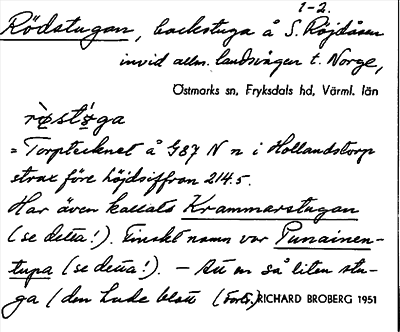 1-2.
Rödstugan, backstuga å S. Röjdåsen
invid allm. landsvägen t. Norge,
Östmarks sn, Fryksdals hd, Värml. län
= Torptecknet å G87 N n i Hollandstorp
strax före höjdsiffran 214.5.
Har även kallats Krammarstugan
(se detta!). Finskt namn var Punainen-
tupa (se detta!). - Att en så liten stu-
ga (den hade blott (forts.) RICHARD BROBERG 1951